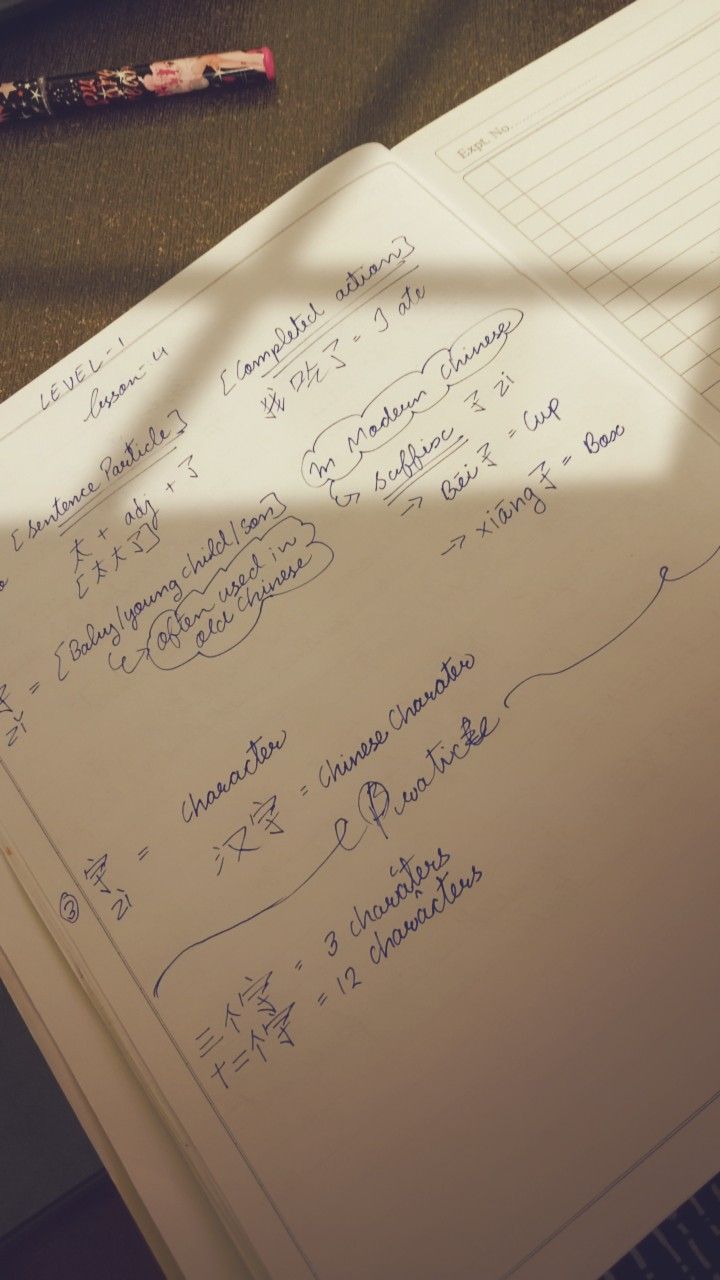 Expt. No.
LEVEL-1
lesson-4
[Sentence Particle]
太 + adj + 了
[太太了]
[Completed action]
我吃了 = I ate
子 = [Baby/young child/son]
zǐ
↳ often used in
old Chinese
In Modern Chinese
↳ suffix 子 zi
→ Bēi子 = Cup
→ xiāng子 = Box
③ 字 = character
zì
汉字 = Chinese Charater
Practice
三个字 = 3 characters
十二个字 = 12 characters